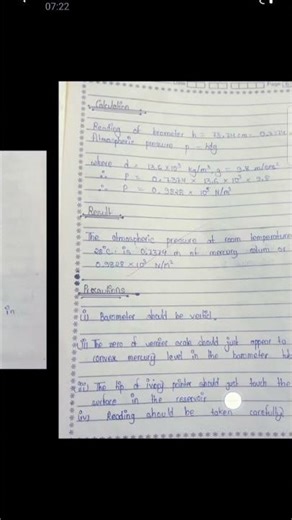 07:22
Calculation :
Reading of barometer h =
Atmospheric pressure p = hdg
where d = 13.6 × 10³ kg/m³, g = 9.8 m/sec²
∴ P = 0.7374 × 13.6 × 10³ × 9.8
∴ P = 0.9828 × 10⁵ N/m²
Result
The atmospheric pressure at room temperature
28°C is 0.7374 m of mercury column or
0.9828 × 10⁵ N/m²
Precautions
in
(i) Barometer should be vertical.
(ii) The zero of vernier scale should just appear to
convex mercury level in the barometer
iii) The tip of ivory pointer should just touch the
surface in the reservoir
(iv) Reading should be taken carefully